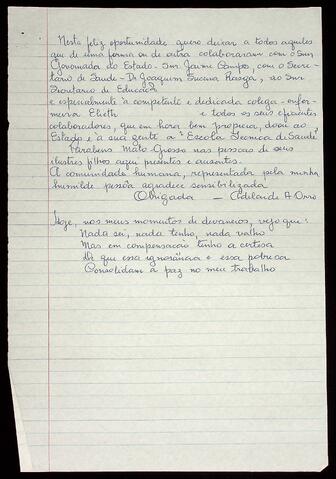 Nesta feliz oportunidade quero deixar a todos aqueles
que de uma forma ou de outra colaboraram com o Snr
Governador do Estado - Snr Jaime Campos, com o Secre-
tário de Saúde - Dr Joaquim Sucena Rasga, ao Snr
Secretário de Educação
e especialmente à competente e dedicada colega - enfer-
meira Elieth e todos os seus eficientes
colaboradores, que em hora bem propícia, doou ao
Estado e à sua gente a "Escola Técnica de Saúde"
Parabens Mato Grosso nas pessoas de seus
ilustres filhos aqui presentes e ausentes.
A comunidade humana, representada pela minha
humilde pessôa agradece sensibilizada
Obrigada - Adelaide A Orro
Hoje, nos meus momentos de devaneios, vejo que:
Nada sei, nada tenho, nada valho
Mas em compensação tenho a certesa
De que essa ignorância e essa pobresa
Consolidam a paz no meu trabalho